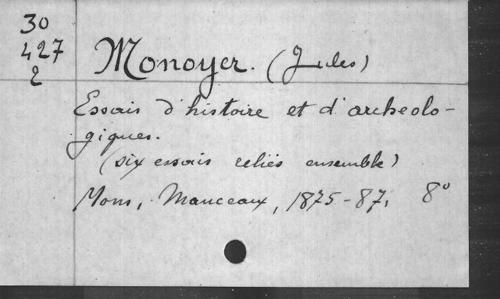 30
427
2
Monoyer. (Jules)
Essais d'histoire et d'archeolo-
giques.
(six essais reliés ensemble)
Mons, Manceaux, 1875-87, 8°